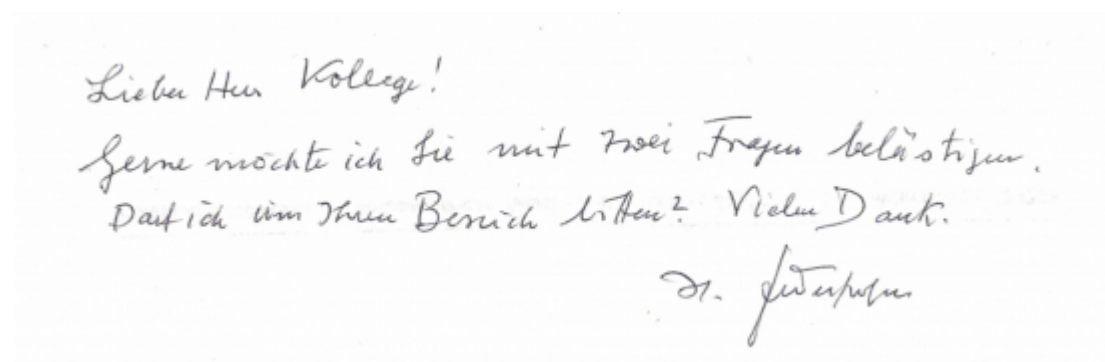 Lieber Herr Kollege!
Gerne möchte ich Sie mit zwei Fragen belästigen.
Darf ich um Ihren Besuch bitten? Vielen Dank.